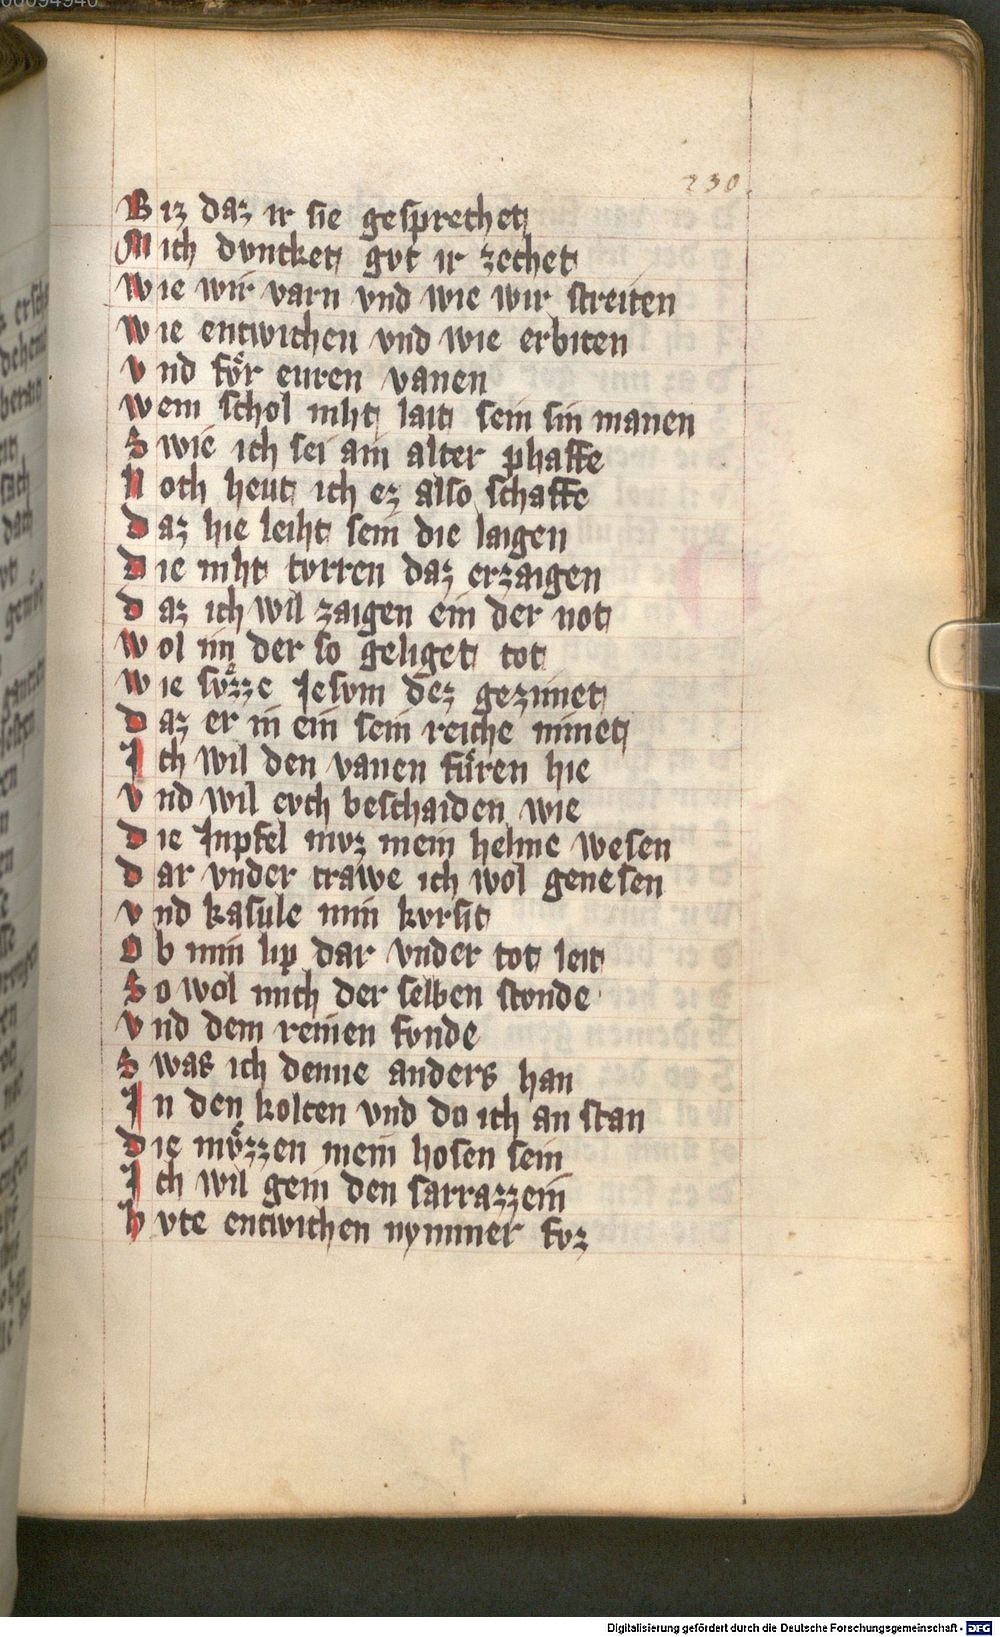 00094940
230.
Biz daz ir sie gesprechet
Mich dvncket gvt ir zechet
Wie wir varn vnd wie wir streiten
Wie entwichen vnd wie erbiten
Vnd fo᷑r euren vanen
Wem schol niht lait sein sin manen
Swie ich sei ain alter phaffe
Noch heut ich ez also schaffe
Daz hie leiht sein die laigen
Die niht torren daz erzaigen
Daz ich wil zaigen ein der not
Wol im der so geliget tot
Wie sv̊zze Jesvm dez gezimet
Daz er in ein sein reiche nimet
Ich wil den vanen fůren hie
Vnd wil evch beschaiden wie
Die Jnpfel mvz mein helme wesen
Dar vnder trawe ich wol genesen
Vnd kasule min kvrsit
Ob min lip dar vnder tot leit
So wol mich der selben stonde
Vnd dem reinen fonde
Swas ich denne anders han
In den kolcen vnd do ich an stan
Die mv̊zzen mein hosen sein
Ich wil gein den sarrazzein
Hvte entwichen nymmer fvz
Digitalisierung gefördert durch die Deutsche Forschungsgemeinschaft - DFG